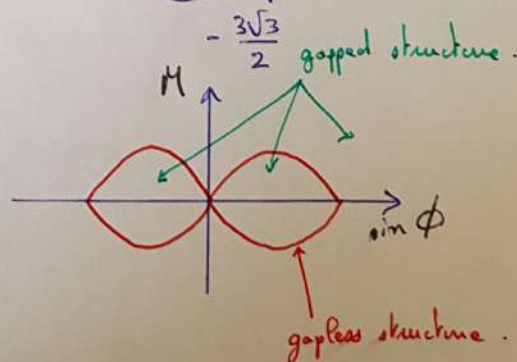 - 3√3/2
gapped structure.
M
sin ϕ
gapless structure.